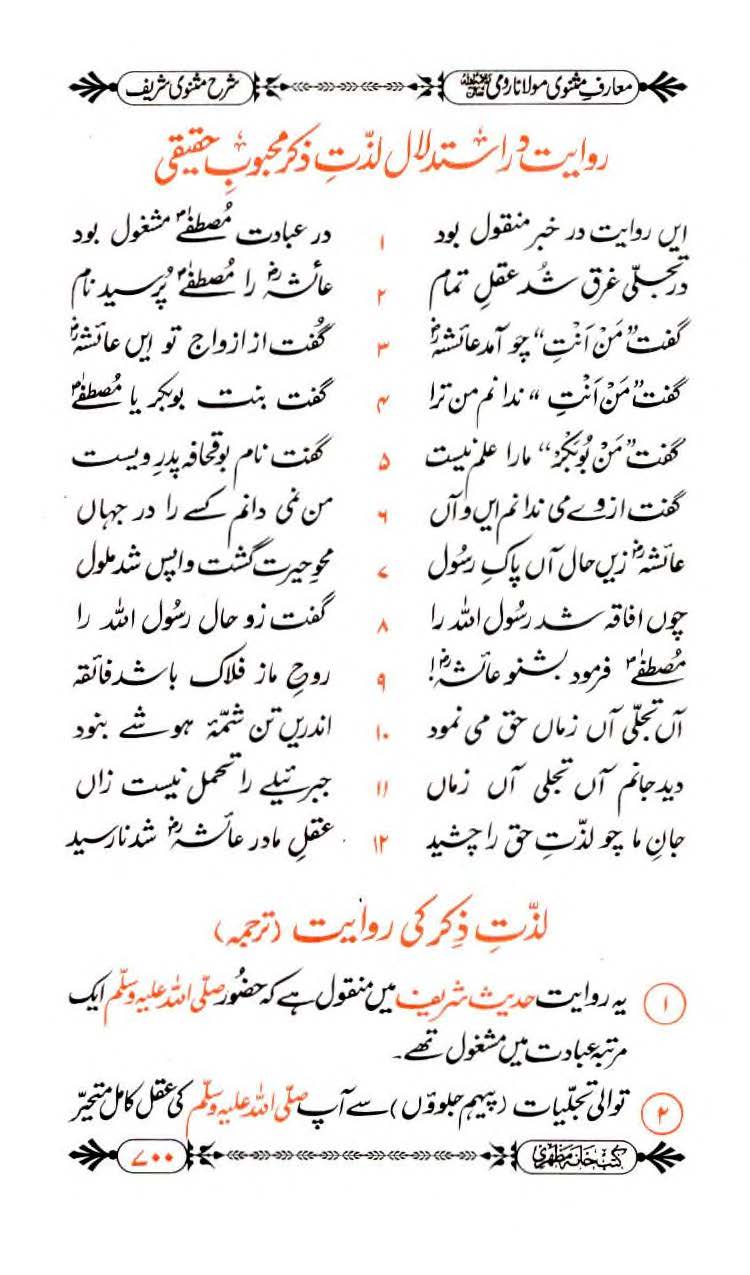 معارفِ مثنوی مولانا رومی شرح مثنوی شریف
روایت در استدلال لذّتِ ذکرِ محبوبِ حقیقی
ایں روایت در خبر منقول بود ۱ در عبادت مُصطفےٰؐ مشغول بود
در تجلّی غرق شُد عقلِ تمام ۲ عائشہؓ را مُصطفےٰؐ پُرسید نام
گفت ”مَنْ اَنْتِ“ چو آمد عائشہؓ ۳ گُفت از ازواج تو ایں عائشہؓ
گفت ”مَنْ اَنْتِ“ ندانم من ترا ۴ گفت بنت بوبکر یا مُصطفےٰؐ
گفت ”مَنْ بُوبَکْرْ“ مارا علم نیست ۵ گفت نام بوقحافہ پدرِ ویست
گفت ازوے می ندانم ایں و آں ۶ من نمی دانم کسے را در جہاں
عائشہؓ زیں حال آں پاکِ رسُول ۷ محوِ حیرت گشت واپس شد ملول
چوں افاقہ شد رسُول اللہ را ۸ گفت زو حال رسُول اللہ را
مُصطفےٰؐ فرمود بشنو عائشہؓ! ۹ روحِ ما ز فلاک باشد فائقہ
آں تجلّی آں زماں حق می نمود ۱۰ اندریں تن شمّۂ ہوشے بنود
دید جانم آں تجلی آں زماں ۱۱ جبرئیلے را تحمل نیست زاں
جانِ ما چو لذّتِ حق را چشید ۱۲ عقلِ ما در عائشہؓ شد نارسید
لذّتِ ذِکر کی روایت (ترجمہ)
۱ یہ روایت حدیث شریف میں منقول ہے کہ حضُور صلّی اللہ علیہ وسلّم ایک
مرتبہ عبادت میں مشغول تھے۔
۲ توالی تجلّیات (پیہم جلوؤں) سے آپ صلّی اللہ علیہ وسلّم کی عقل کامل متحیّر
کتب خانہ مظہری ۷۰۰